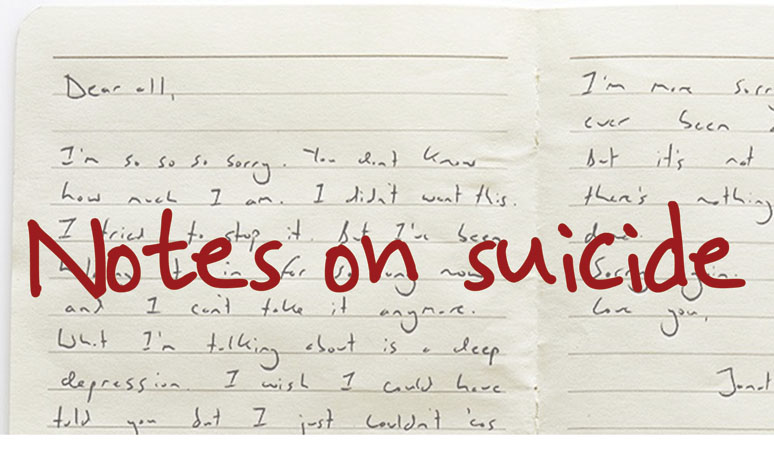 Notes on suicide
Dear all,
I'm so so so sorry. You don't know
how much I am. I didn't want this.
I tried to stop it. But I've been
it in for so long now
and I can't take it anymore.
What I'm talking about is a deep
depression. I wish I could have
told you but I just couldn't 'cos
I'm more sorr
ever been
But it's not
there's nothing
done.
Sorry again.
Love you,
Jonat